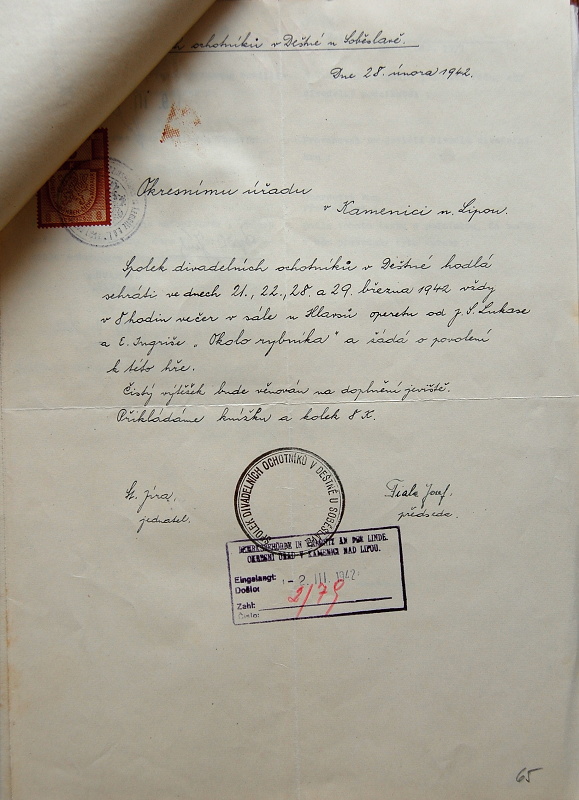 ochotníků v Deštné u Soběslavě.
Dne 28. února 1942.
Okresnímu úřadu
v Kamenici n. Lipou.
Spolek divadelních ochotníků v Deštné hodlá
sehráti ve dnech 21., 22., 28. a 29. března 1942 vždy
v 8 hodin večer v sále u Hlavsů operetu od J. S. Lukase
a E. Ingriše „Okolo rybníka" a žádá o povolení
k této hře.
Čistý výtěžek bude věnován na doplnění jeviště.
Přikládáme knížku a kolek 8 K.
St. Jíra,
jednatel.
Fiala Josef,
předseda.
SPOLEK DIVADELNÍCH OCHOTNÍKŮ V DEŠTNÉ U SOBĚSLAVĚ
BEZIRKSBEHÖRDE IN KAMENITZ AN DER LINDE.
OKRESNÍ ÚŘAD V KAMENICI NAD LIPOU.
Eingelangt:
Došlo:
- 2. III. 1942
Zahl:
Číslo:
2/79
8
65